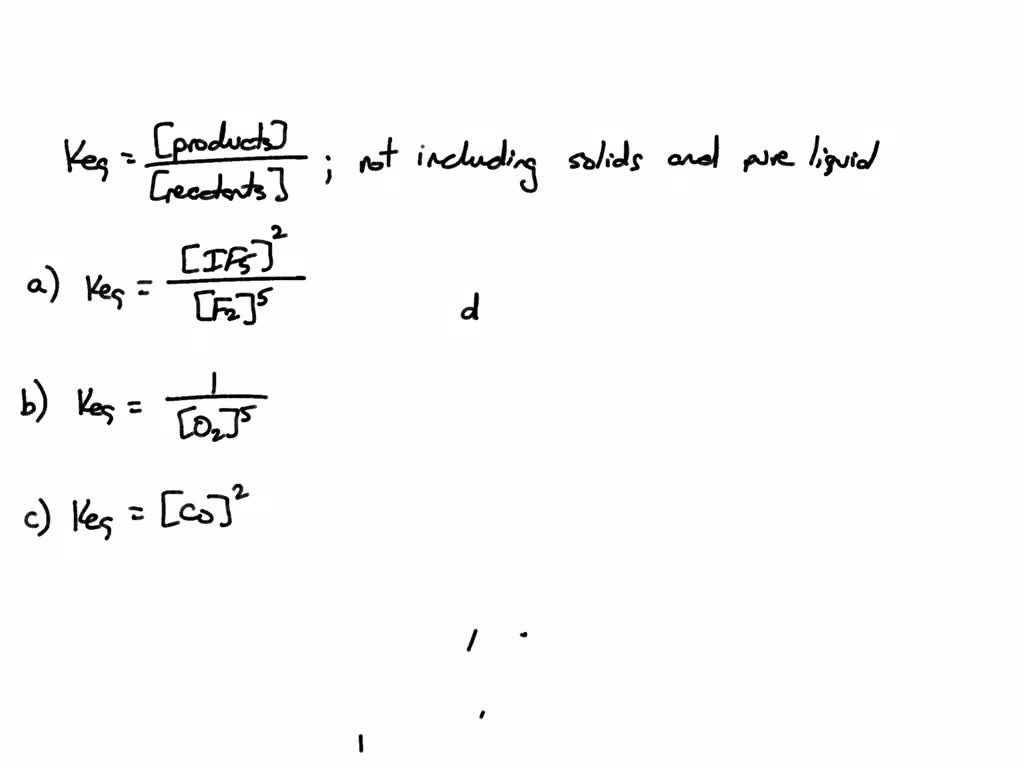 Keq = [products] / [reactants] ; not including solids and pure liquid
a) Keq = [IF5]^2 / [F2]^5
d
b) Keq = 1 / [O2]^5
c) Keq = [CO]^2